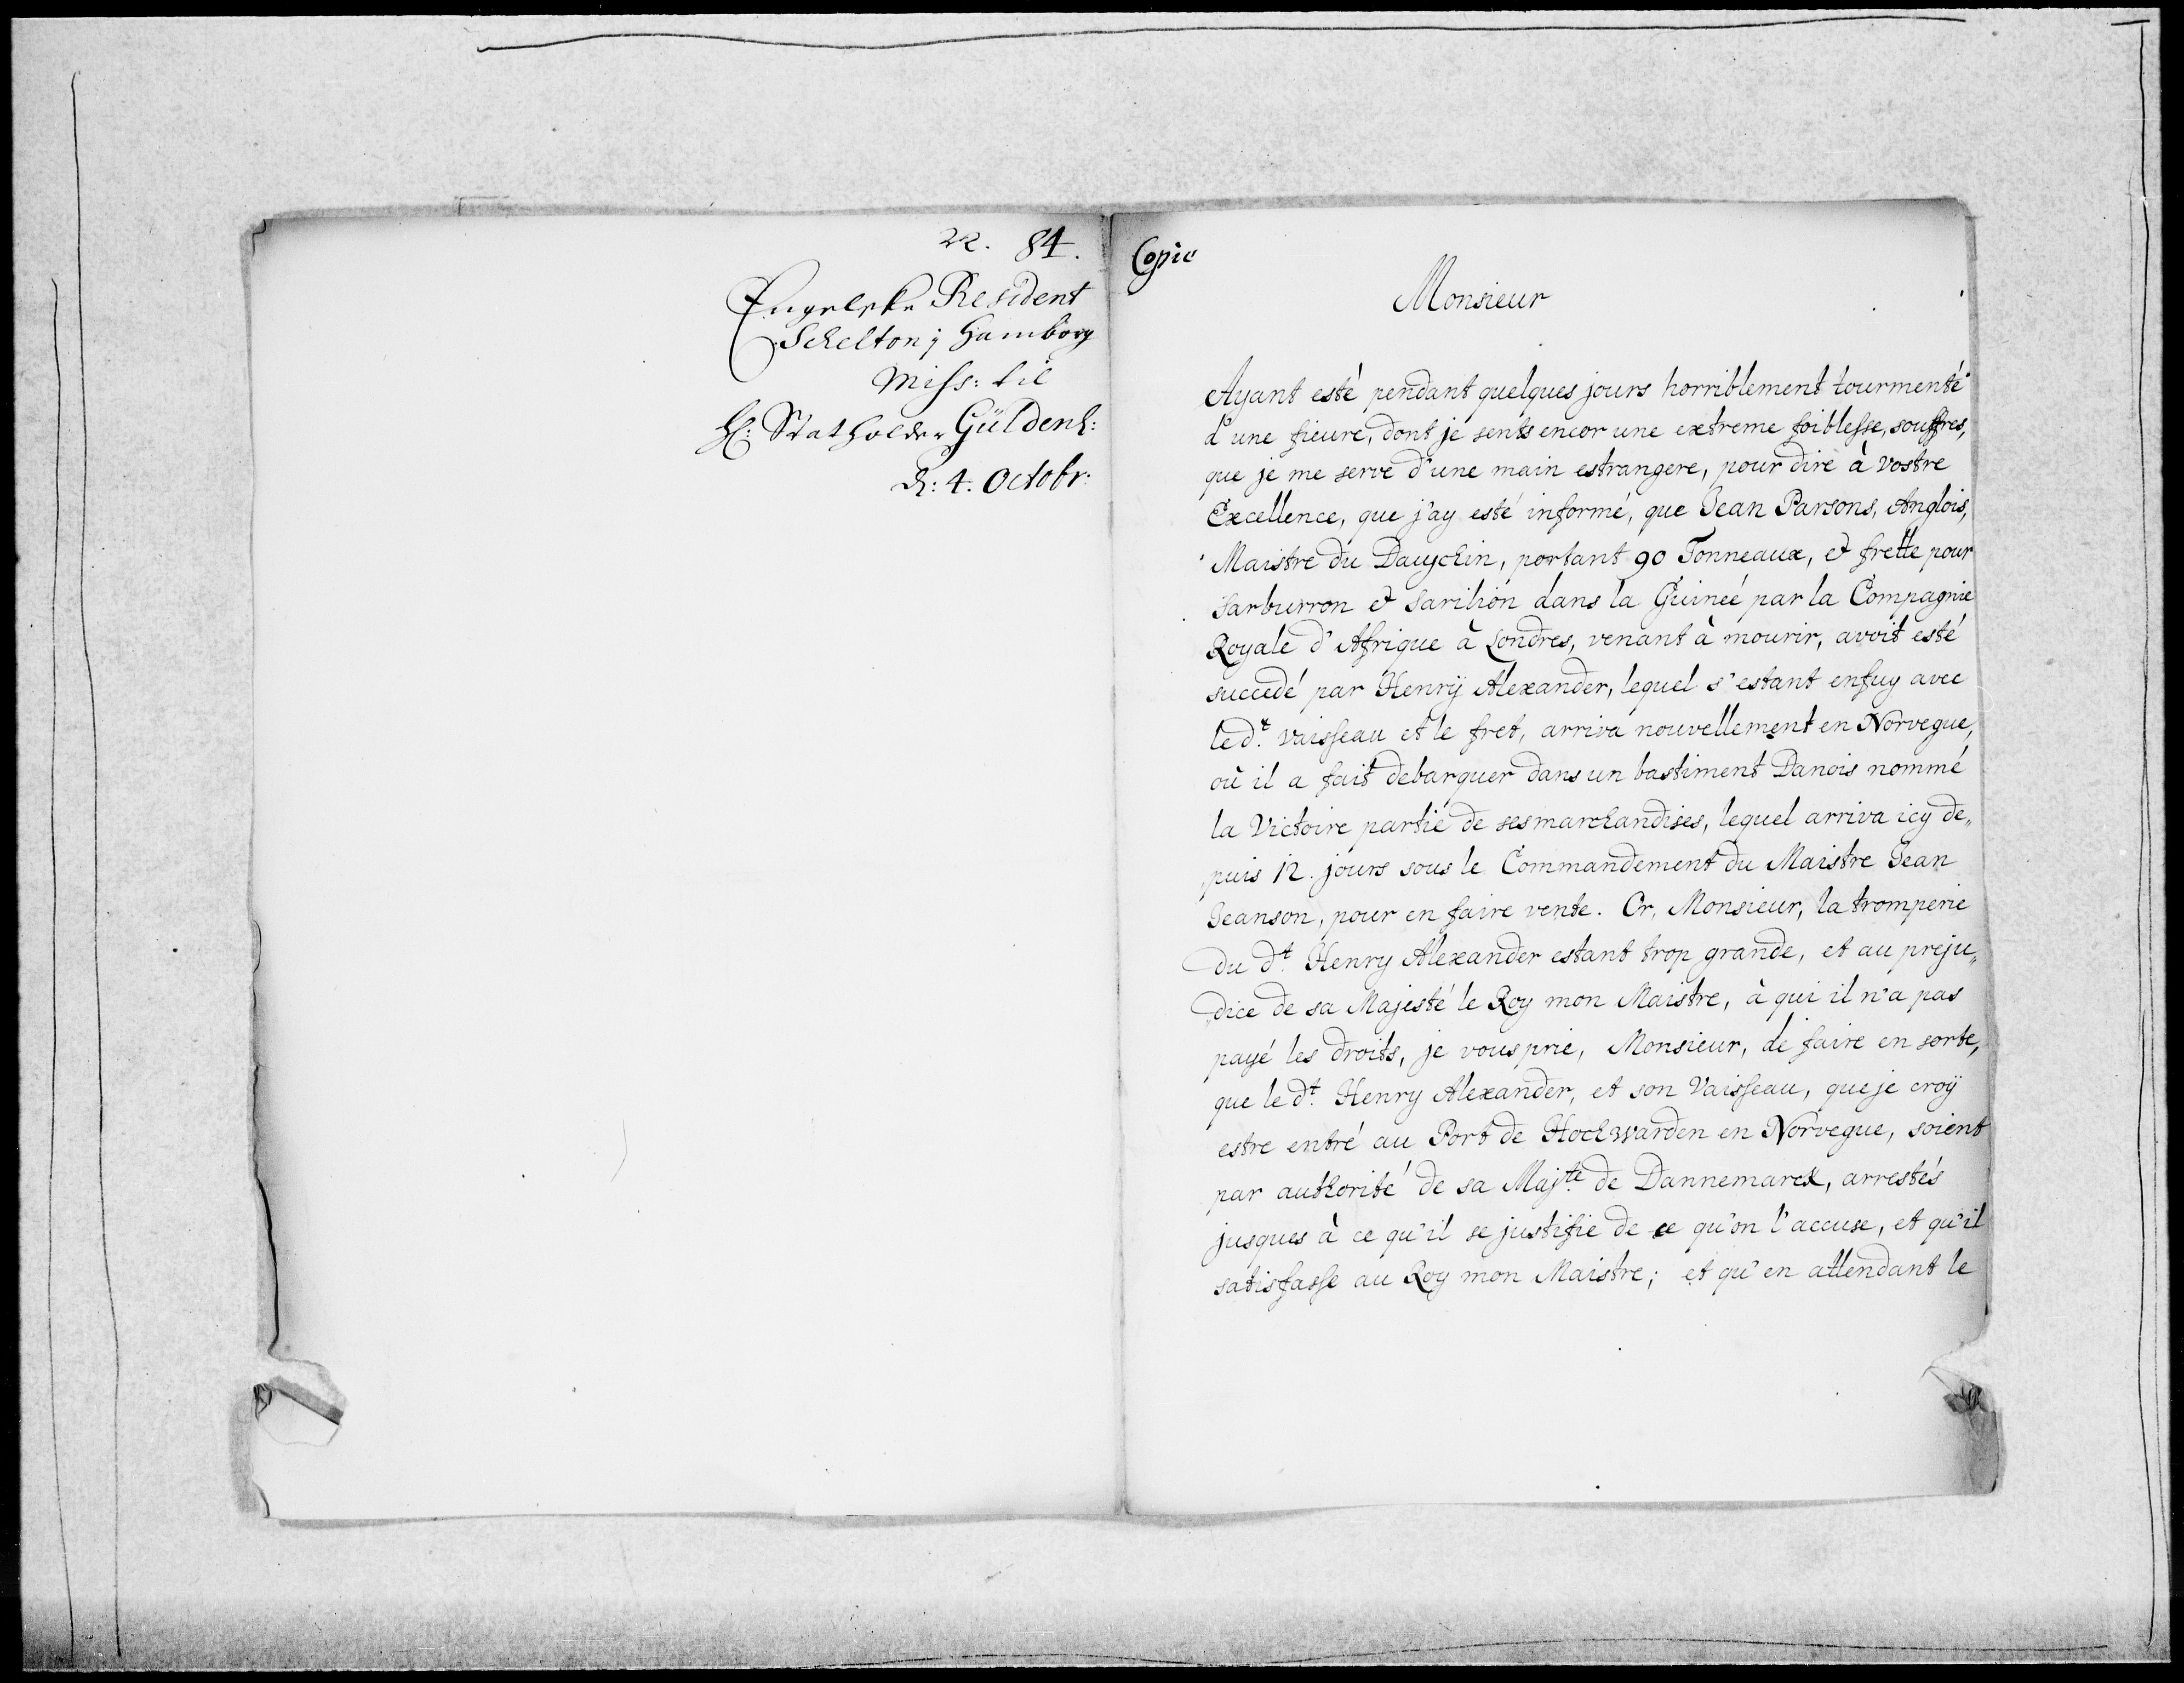 22. 84.
Engelske Resident
Schelton j Hamborg
Miss: til
H: Statholder Güldenl:
d: 4. Octobr:
Copie
Monsieur
Ayant esté pendant quelques jours horriblement tourmenté
d'une fieure, dont je sents encor une extreme foiblesse, souffres,
que je me serve d'une main estrangere, pour dire à vostre
Excellence, que j'ay esté informé, que Jean Parsons, Anglois,
Maistre du Dauchin, portant 90 Tonneaux, et frette pour
Sarburron et Sarilion dans la Guineé par la Compagnie
Royale d'Afrique à Londres, venant à mourir, avoit esté
succedé par Henrÿ Alexander, lequel s'estant enfuy avec
le dt. vaisseau et le fret, arriva nouvellement en Norvegue,
où il a fait debarquer dans un bastiment Danois nommé
la Victoire partie de ses marchandises, lequel arriva icy de„
puis 12. jours sous le Commandement du Maistre Jean
Jeanson, pour en faire vente. Or, Monsieur, la tromperie
du dt. Henry Alexander estant trop grande, et au preju„
„dice de sa Majesté le Roy mon Maistre, à qui il n'a pas
payé les droits, je vous prie, Monsieur, de faire en sorte,
que le dt. Henry Alexander, et son Vaisseau, que je croÿ
estre entré au Port de Hochwarden en Norvegue, soient
par authorité de sa Majte. de Dannemarck, arrestés
jusques à ce qu'il se justifie de ce qu'on l'accuse, et qu'il
satisfasse au Roy mon Maistre; et qu'en attendant le